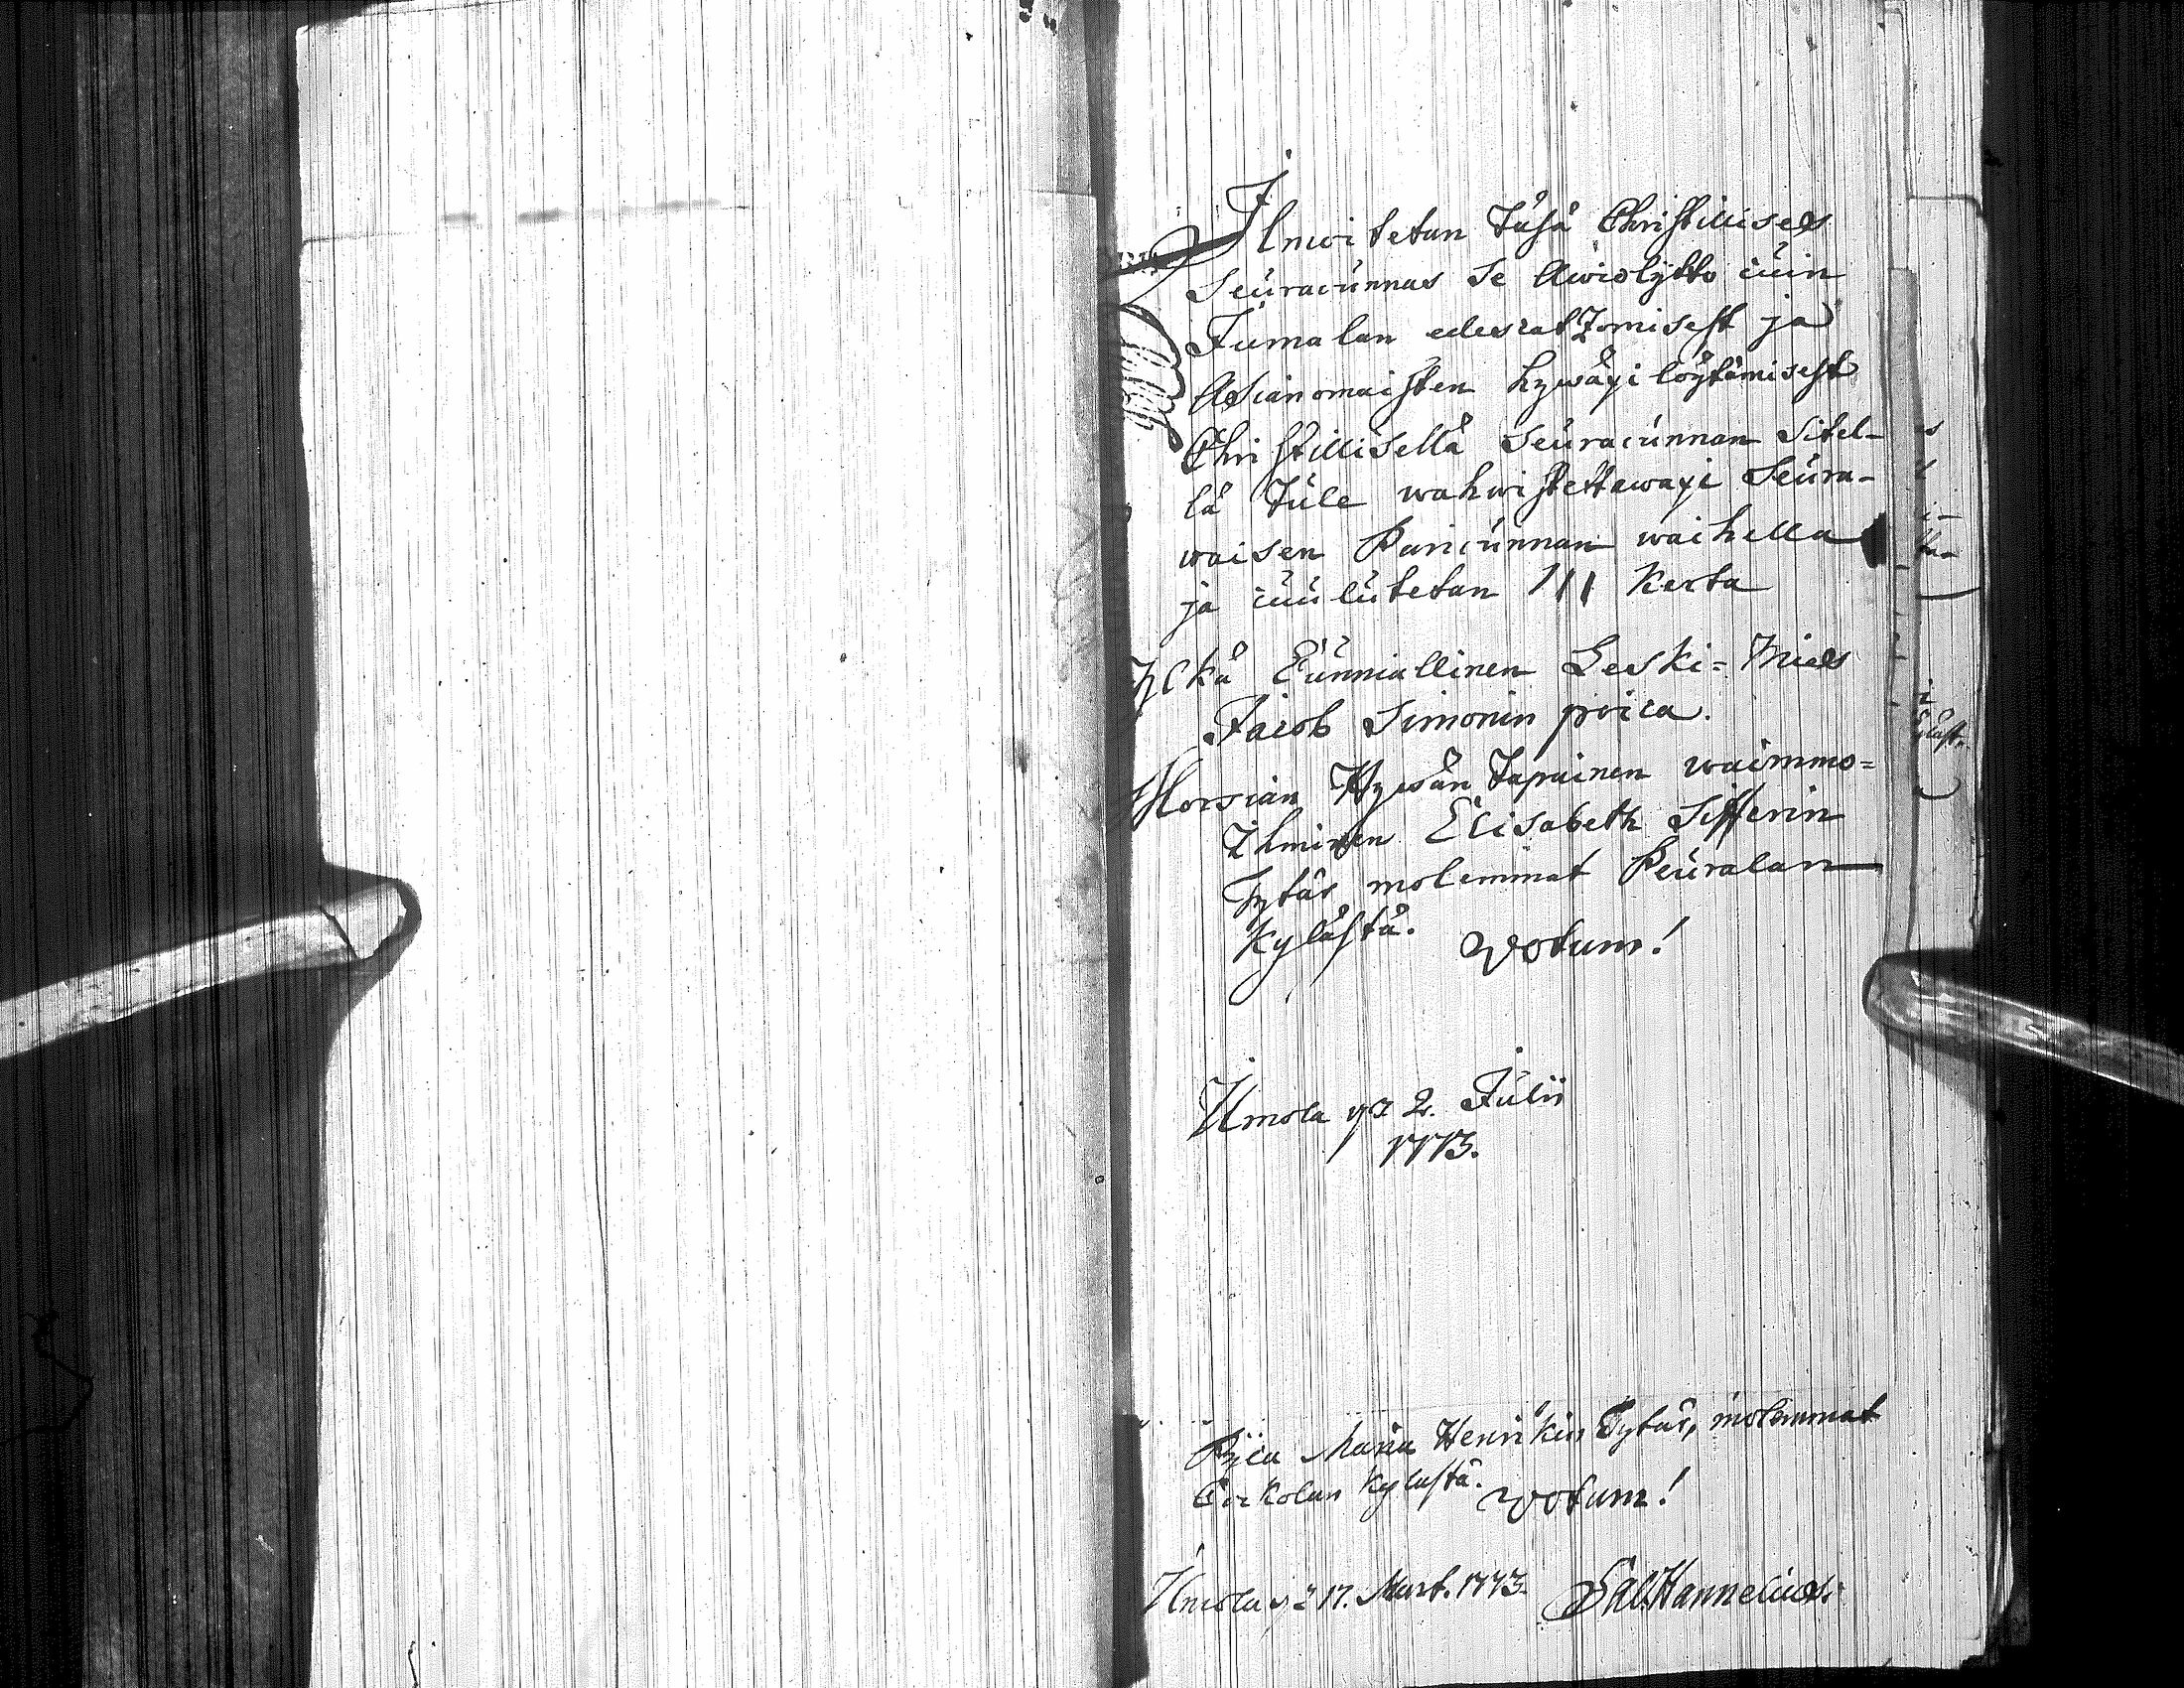 Ilmoitetan täsä Christillises
Seuracunnas se Awioljitto cuin
Jumalan edescatzomisest ja
Asianomaisten hywäxi löytämisest
Christillisellä Seuracunnan Sitel-
lä tule wahwistettawaxi Seura-
waisen Paricunnan waihella
ja cuulutetan III Kerta
Ylkä Cunniallinen Leski-Mies
Jacob Simonin poica.
Morsian Hywän Tapainen waimmo-
Ihminen Elisabeth Sifferin
Tytär molemmat Peuralan
Kylästä. Votum!
Umola p 2. Julii
1773.
Pijca Maria Henrikin Tytär, molemmat
Corkolan Kylästä. Votum!
Umola 17. Mart. 1773. Sal. Hannelius.